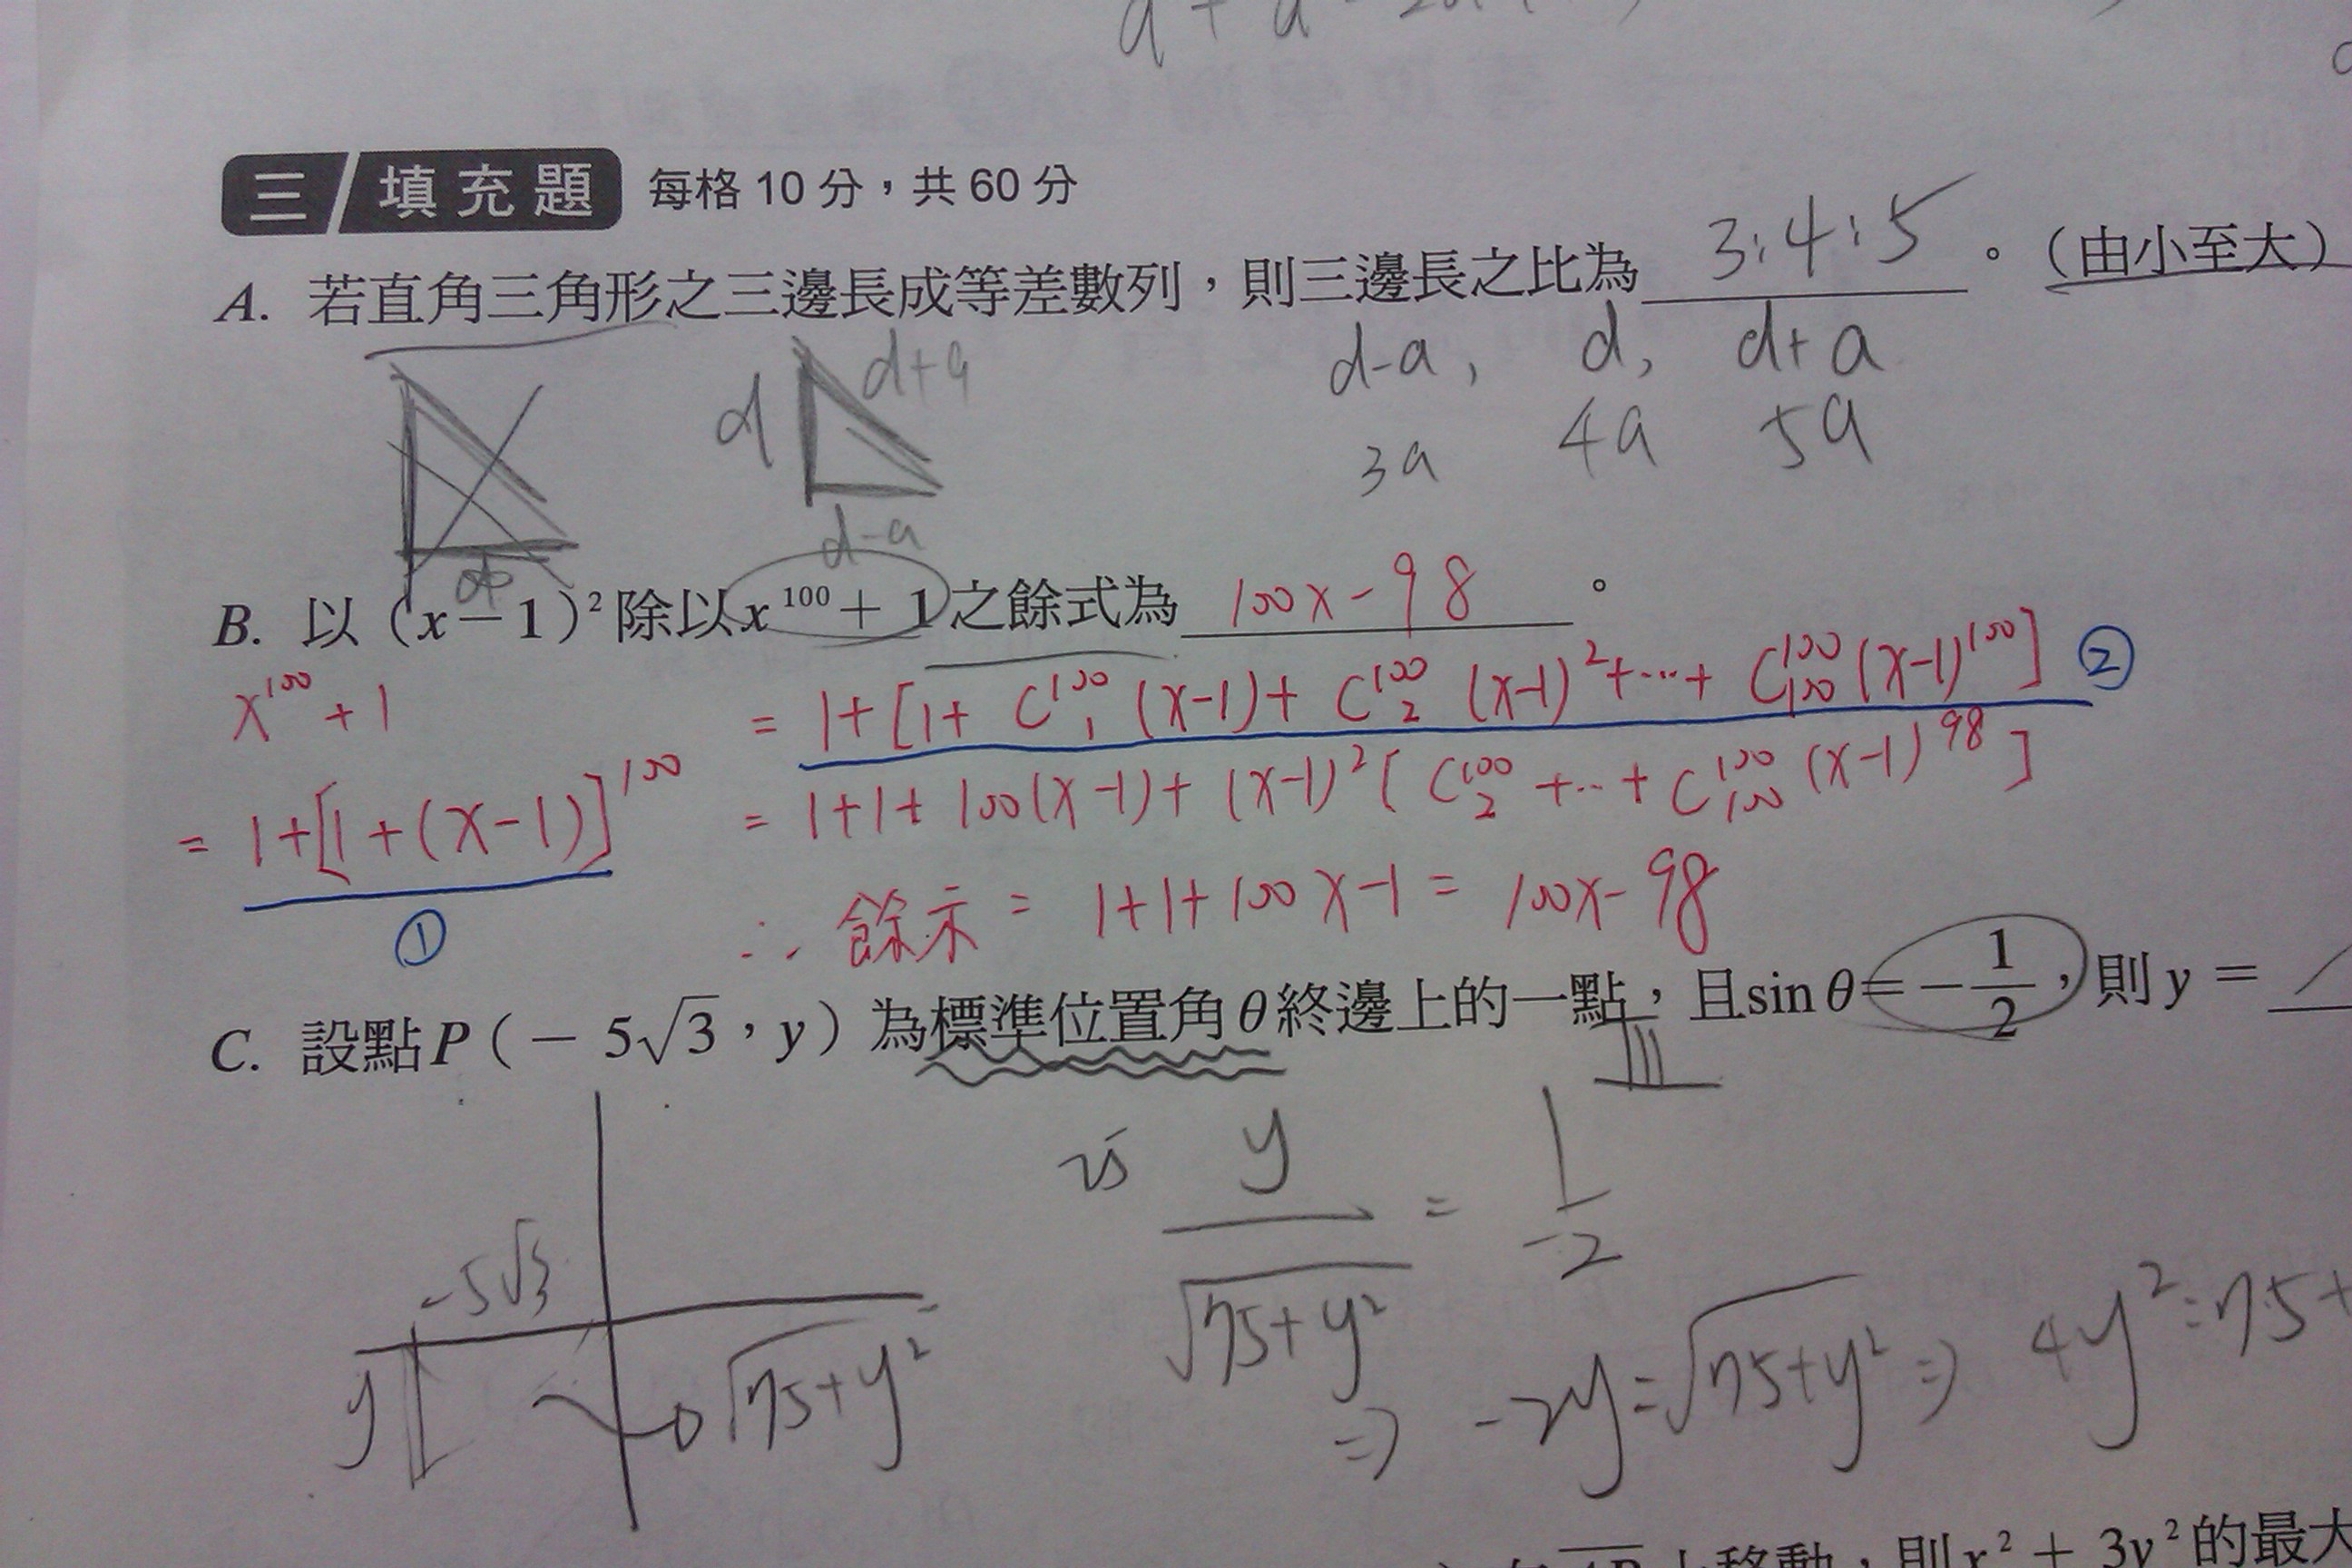 三 填充題 每格 10 分,共 60 分
A. 若直角三角形之三邊長成等差數列,則三邊長之比為 3:4:5 。(由小至大)
d-a, d, d+a
3a 4a 5a
d d+a
d-a
B. 以(x-1)²除以x¹⁰⁰+1之餘式為 100x-98 。
x¹⁰⁰+1
= 1+[1+(x-1)]¹⁰⁰
①
= 1+[1+C¹⁰⁰₁(x-1)+C¹⁰⁰₂(x-1)²+…+C¹⁰⁰₁₀₀(x-1)¹⁰⁰] ②
= 1+1+100(x-1)+(x-1)²[C¹⁰⁰₂+…+C¹⁰⁰₁₀₀(x-1)⁹⁸]
∴ 餘示 = 1+1+100x-1 = 100x-98
C. 設點P(-5√3,y)為標準位置角θ終邊上的一點,且sinθ=-1/2,則y=
III
-5√3
y √75+y²
y/√75+y² = 1/-2
⇒ -2y=√75+y² ⇒ 4y²=75+
上移動,則x²+3y²的最大